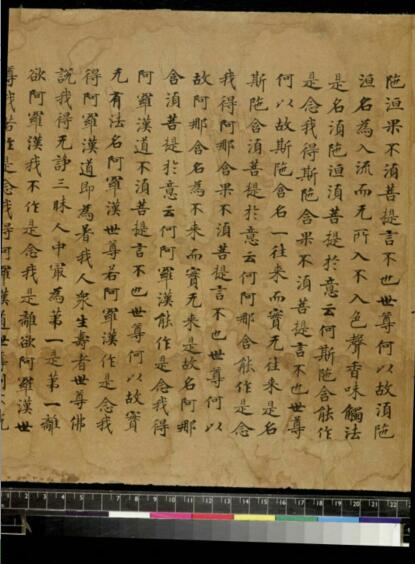 陁洹果不湏菩提言不也世尊何以故湏陁
洹名為入流而无所入不入色聲香味觸法
是名湏陁洹湏菩提於意云何斯陁含能作
是念我得斯陁含果不湏菩提言不也世尊
何以故斯陁含名一往来而實无往来是名
斯陁含湏菩提於意云何阿那含能作是念
我得阿那含果不湏菩提言不也世尊何以
故阿那含名為不来而實无来是故名阿那
含湏菩提於意云何阿羅漢能作是念我得
阿羅漢道不湏菩提言不也世尊何以故實
无有法名阿羅漢世尊若阿羅漢作是念我
得阿羅漢道即為著我人衆生壽者世尊佛
說我得无諍三昧人中㝡為第一是第一離
欲阿羅漢我不作是念我是離欲阿羅漢世
尊我若作是念我得阿羅漢道世尊則不